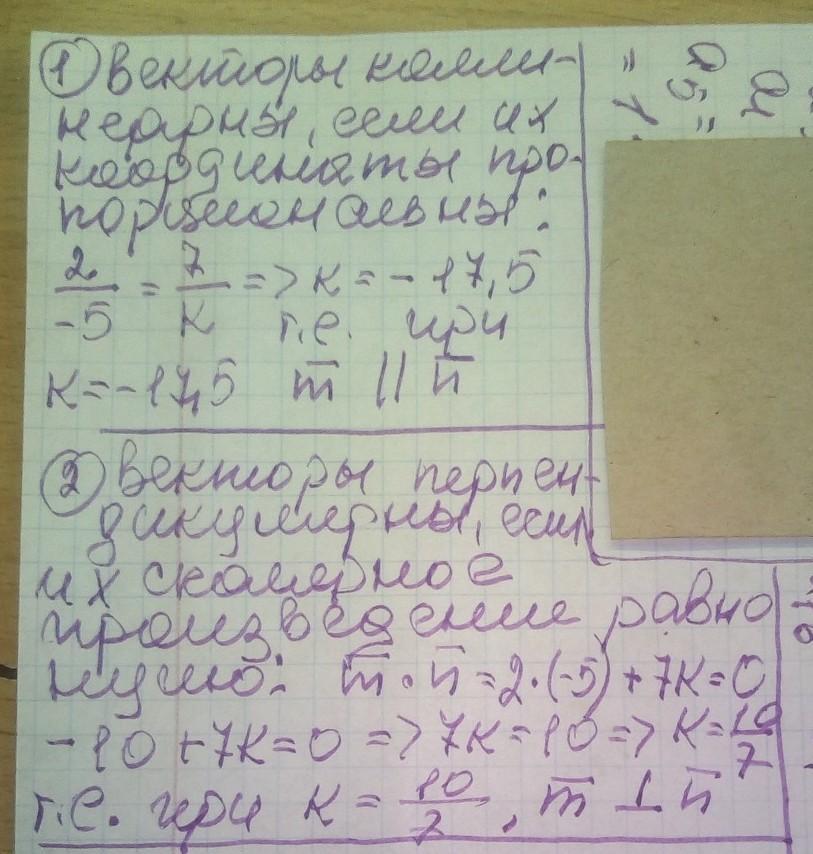 ① Векторы колли-
неарны, если их
координаты про-
порциональны:
2/-5 = 7/к => к = -17,5
т.е. при
к = -17,5 m̅ || n̅
② Векторы перпен-
дикулярны, если
их скалярное
произведение равно
нулю: m̅ · n̅ = 2·(-5) + 7к = 0
-10 + 7к = 0 => 7к = 10 => к = 10/7
т.е. при к = 10/7, m̅ ⊥ n̅
a5 =
= 1